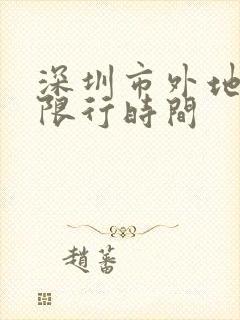 深圳市外地
限行時間
趙蕃